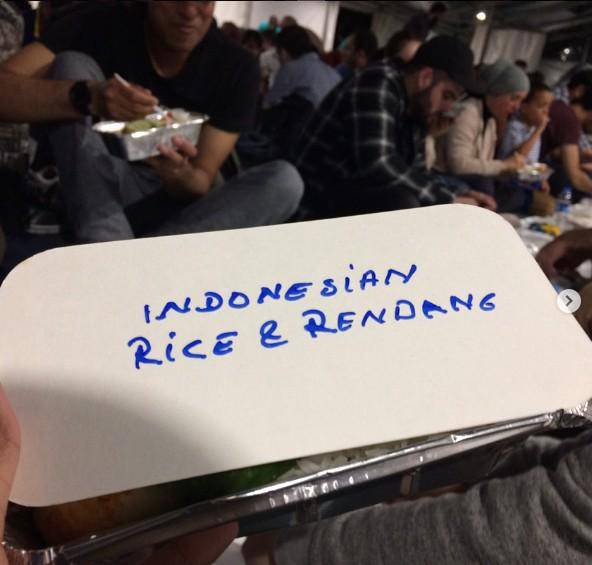 INDONESiAN
RiCE & RENDANG